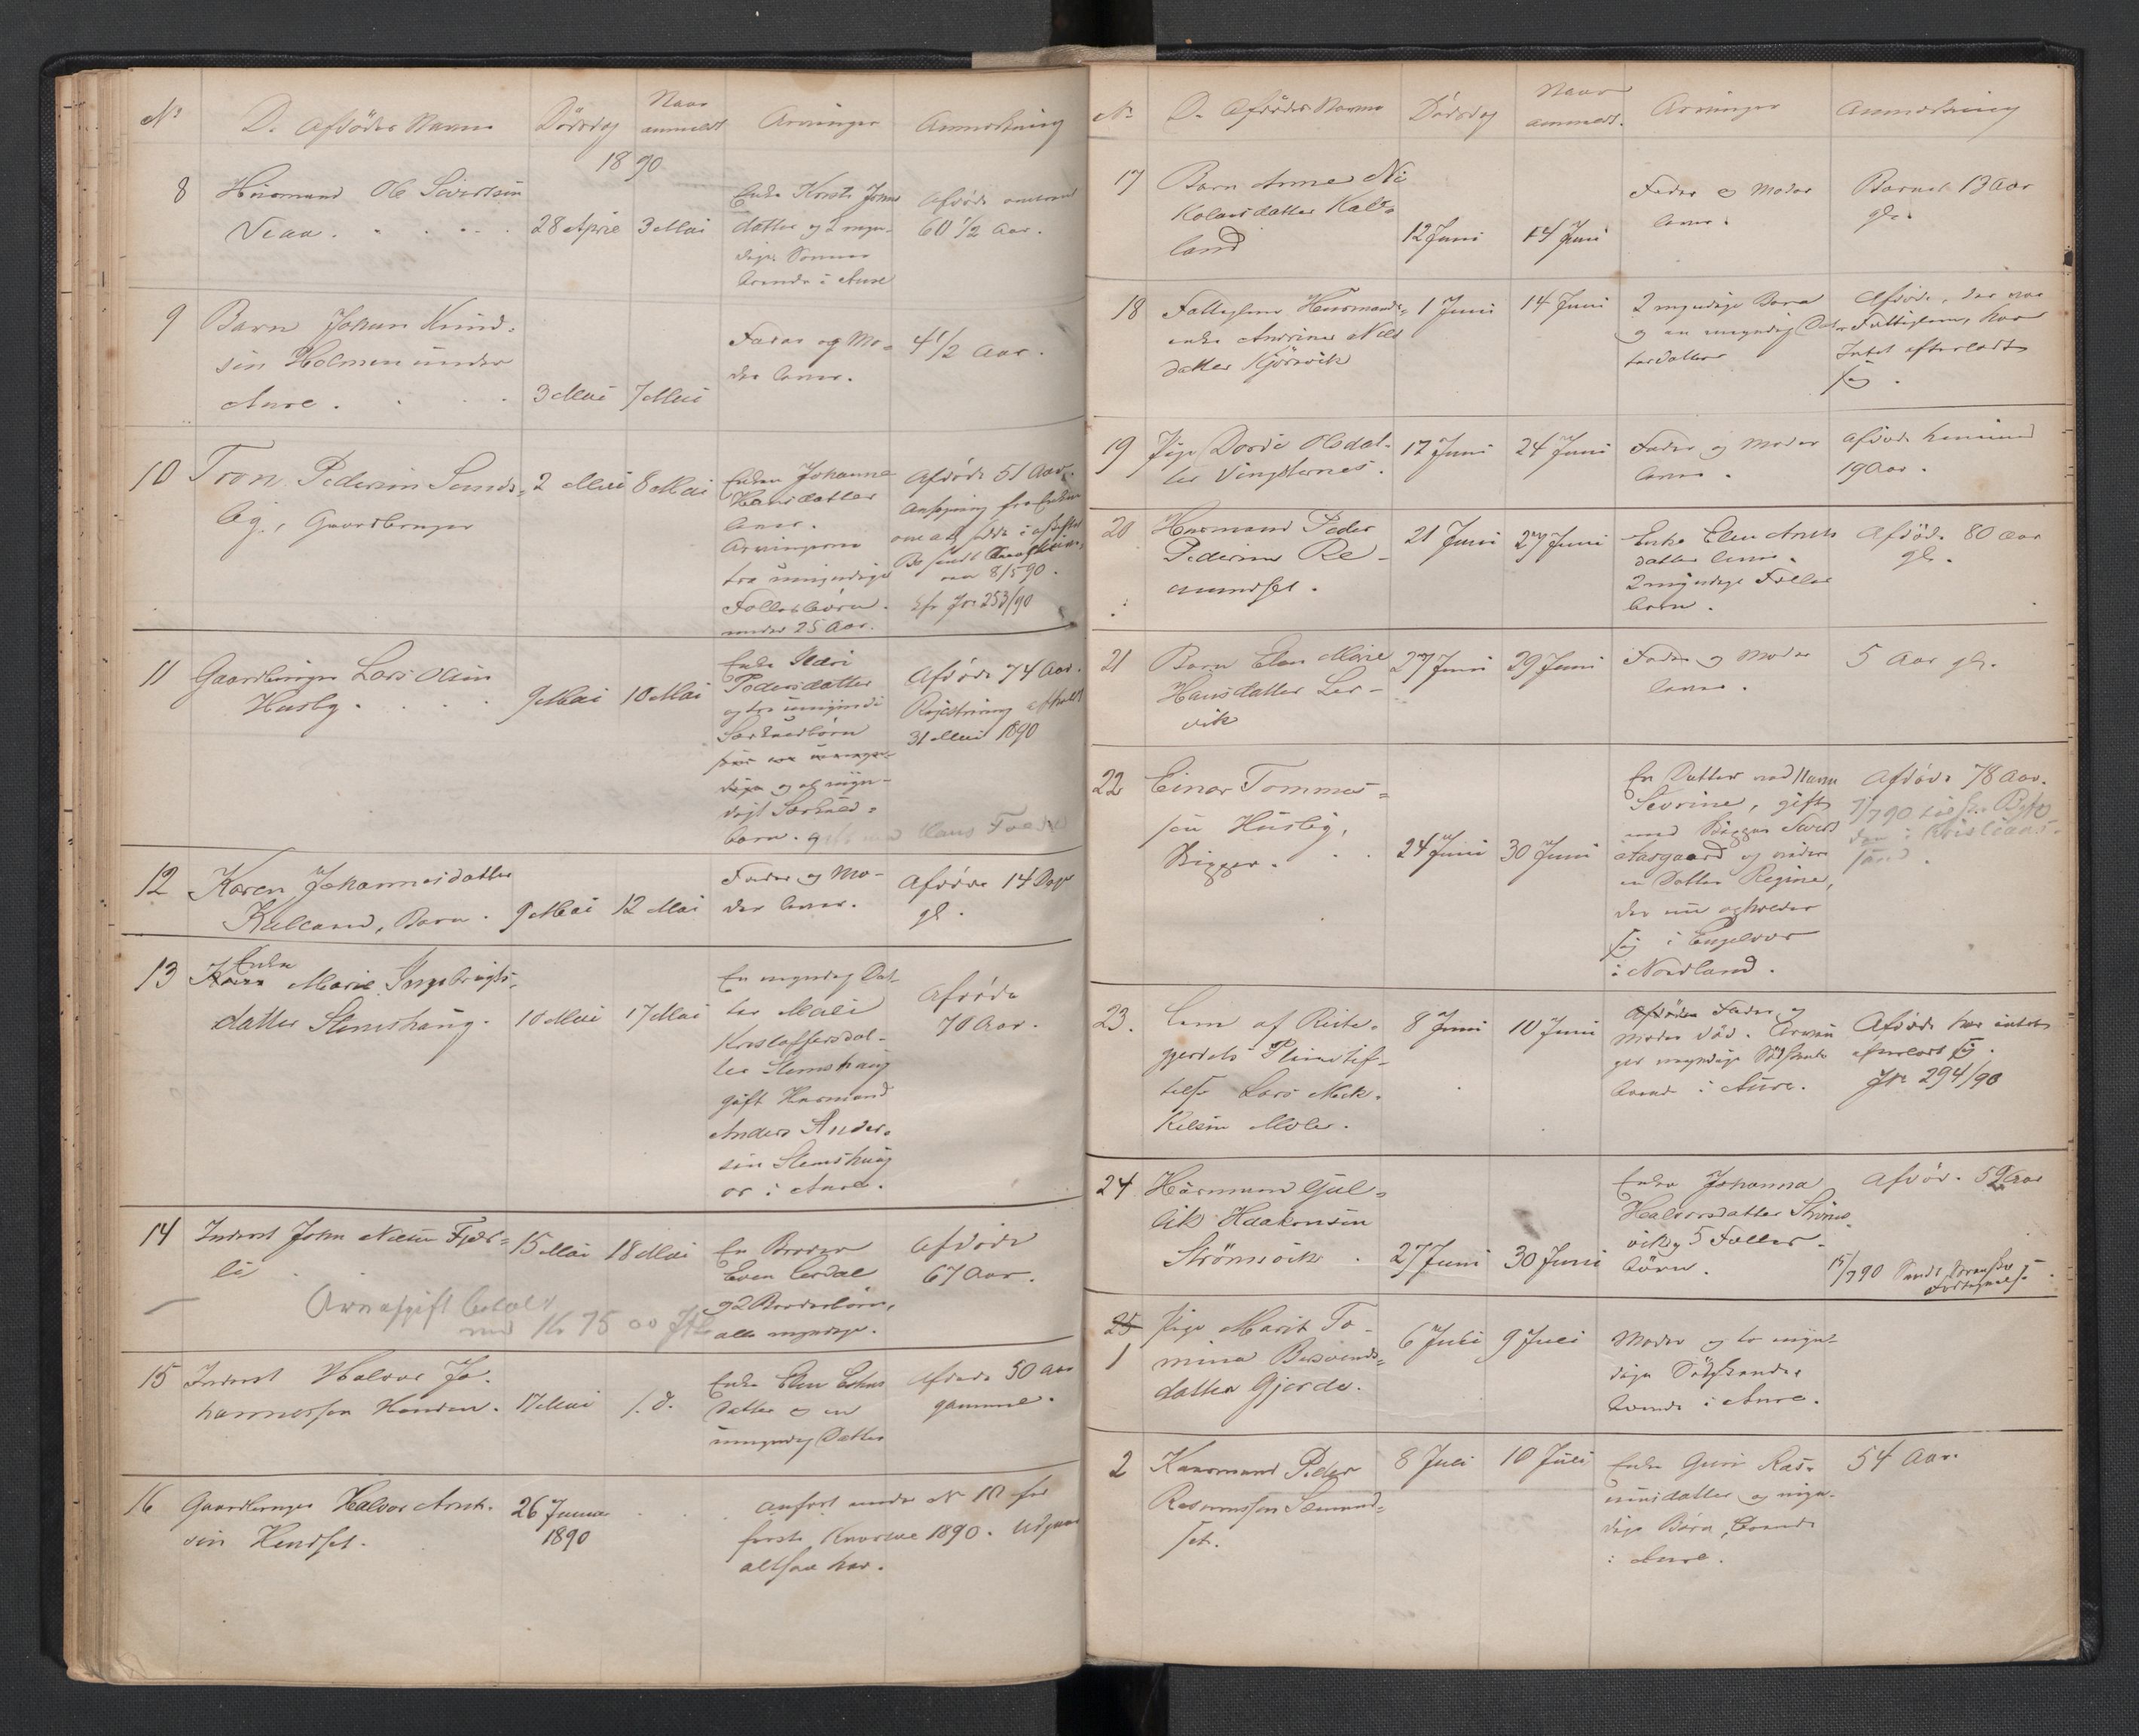 No
D. Afdødes Navn
Dödsdag
Naar
anmeldt
Arvinger
Anmerkning
1890
8
Huusmand Ole Sivertsen
Viaa
28 April
3 Mai
Enke Kirsti Johns
datter og 2 myn-
dige Sønner
boende i Aure
Afdøde omtrent
60 1/2 Aar.
9
Barn Johan Knud-
sen Holmen under
Aure
3 Mai
7 Mai
Fader og Mo-
der lever.
4 1/2 Aar.
10
Tron Pedersen Sunds-
by, Gaardbruger
2 Mai
8 Mai
Enken Johanna
Hansdatter
lever.
Arvingerne
tre umyndige
Fællesbörn
under 25 Aar.
Afdøde 51 Aar.
Ansøgning fra Enken
om at sidde i uskiftet
Bo sendt
8/5 90.
Jfr Jr. 253/90
11
Gaardbruger Lars Olsen
Husby
9 Mai
10 Mai
Enke Mari
Pedersdatter
og tre umyndi
Særkuldbörn
dige og et myn-
digt Særkuld-
barn. gift med Hans
Afdøde 74 Aar.
Registrering afholdt
31 Mai 1890
12
Karen Johannesdatter
Kalland, Barn
9 Mai
12 Mai
Fader og Mo-
der lever.
Afdøde 14 Dage
gl.
13
Enke
Marie Ingebrigts-
datter Stemshaug.
10 Mai
17 Mai
En myndig Dat-
ter Mali
Kristoffersdat-
ter Stemshaug
gift Husmand
Anders Ander-
sen Stemshaug
er i Aure.
Afdøde
70 Aar.
14
Inderst John Nilsen Fjeld-
li
15 Mai
18 Mai
En Broder
Even Lerdal
og 2 Broderbörn,
alle myndige.
Afdøde
67 Aar.
Arveafgift betalt
med Kr 75 00
15
Inderst Halvor Jo-
hannessen Hendsen.
17 Mai
s. d.
Enke Elen Estens
datter og en
umyndig Datter
Afdøde 50 Aar
gammel.
16
Gaardbruger Halvor Arnt-
sen Hendset.
26 Januar
1890
Anført under No 10 for
første Kvartal 1890. Udgaar
altsaa her.
No
D. Afdødes Navn
Dødsdag
Naar
anmeldt.
Arvinger
Anmerkning
17
Barn Anne Ni
kolaisdatter Kal-
land
12 Juni
14 Juni
Fader og Moder
lever.
Barnet 13 Aar
gl.
18
Fattiglem Huusmands-
enke Andrine Nils
datter Kjörsvik
1 Juni
14 Juni
2 myndige Barn
og en umyndig Dat-
terdatter
Afdøde, der var
Fattiglem, har
Intet efterladt
sig.
19
Pige Dordi Olsdat-
ter Vingsternes.
17 Juni
24 Juni
Fader og Moder
lever.
Afdøde henimod
19 Aar.
20
Husmand Peder
Pedersen Re-
mundset.
21 Juni
27 Juni
Enke Elen Arnts
datter lever.
2 myndige Fælles
börn.
Afdöde 80 Aar
gl.
21
Barn Elen Marie
Hansdatter Ler-
vik
27 Juni
29 Juni
Fader og Moder
lever.
5 Aar gl.
22
Einar Tommes-
sen Husby,
Skigger.
24 Juni
30 Juni
En Datter ved Navn
Sevrine, gift
med Skigger Sivert
Aasgaard og videre
en Datter Regine,
der nu opholder
sig i Engelvær
i Nordland.
Afdøde 78 Aar.
7/7 90
i Kristians-
sund.
23.
Lem af Reits-
gjerdets Pleiestif-
telse Lars Mik-
kelsen Moler.
8 Juni
10 Juni
Afdødes Fader og
Moder död. Arvin
ger myndige Södskende
boende i Aure.
Afdøde har intet
efterladt sig.
Jr. 294/90
24
Husmand Gul-
lik Haakensen
Strömsvik
27 Juni
30 Juni
Enke Johanna
Halvorsdatter Ströms-
vik og 5 Fælles-
börn.
Afdøde 52 Aar
15/7 90
25
1
Pige Marit To-
mina Bersvends-
datter Gjerde.
6 Juli
9 Juli
Moder og to myn-
dige Södskende
boende i Aure.
2
Kaarmand Peder
Rasmussen Sæmund-
set.
8 Juli
10 Juli
Enke Guri Ras-
musdatter og myn-
dige Börn, boende
i Aure.
54 Aar.